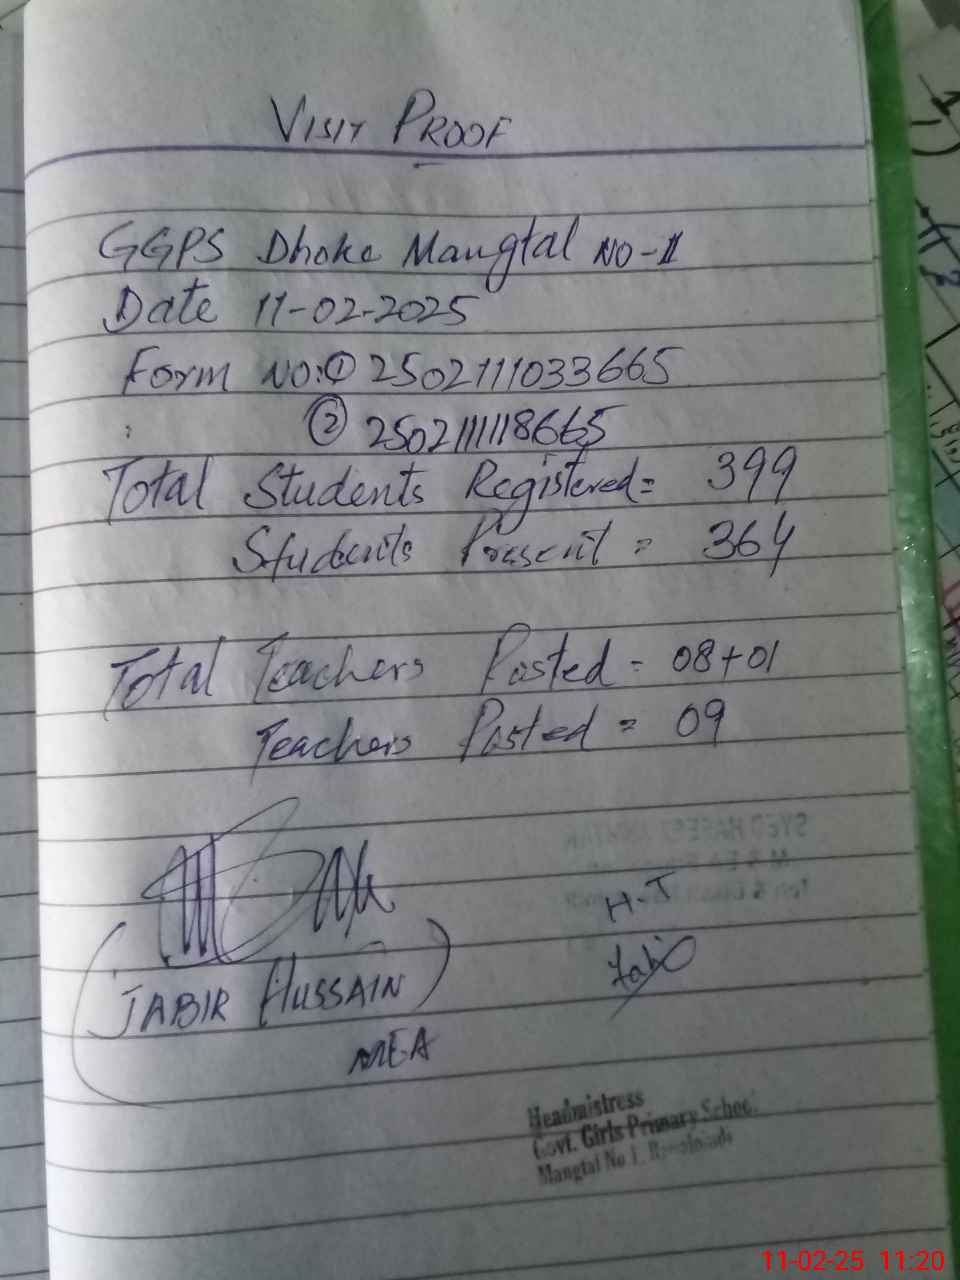 VISIT PROOF
GGPS Dhoke Mangtal NO-1
Date 11-02-2025
Form NO:① 2502111033665
② 2502111118665
Total Students Registered= 399
Students Present = 364
Total Teachers Posted = 08+01
Teachers Posted = 09
H-T
(JABIR HUSSAIN)
MEA
Headmistress
Govt. Girls Primary School
Mangtal No 1, Rawalpindi
11-02-25 11:20